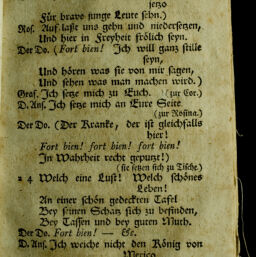 jetzo
Für brave junge Leute sehn.)
Ros. Auf laßt uns gehn und niedersetzen,
Und hier in Freyheit frölich seyn.
Der Do. (Fort bien! Ich will ganz stille
seyn,
Und hören was sie von mir sagen,
Und sehen was man machen wird.)
Graf. Ich setze mich zu Euch. (zur Cor.)
D. Ans. Ich setze mich an Eure Seite
(zur Rosina.)
Der Do. (Der Kranke, der ist gleichfalls
hier!
Fort bien! fort bien! fort bien!
In Wahrheit recht geputzt!)
(sie setzen sich zu Tische.)
à 4 Welch eine Lust! Welch schönes
Leben!
An einer schön gedeckten Tafel
Bey seinen Schatz sich zu befinden,
Bey Tassen und bey guten Muth.
Der Do. Fort bien! — &c.
D. Ans. Ich weiche nicht den König von
Mexico